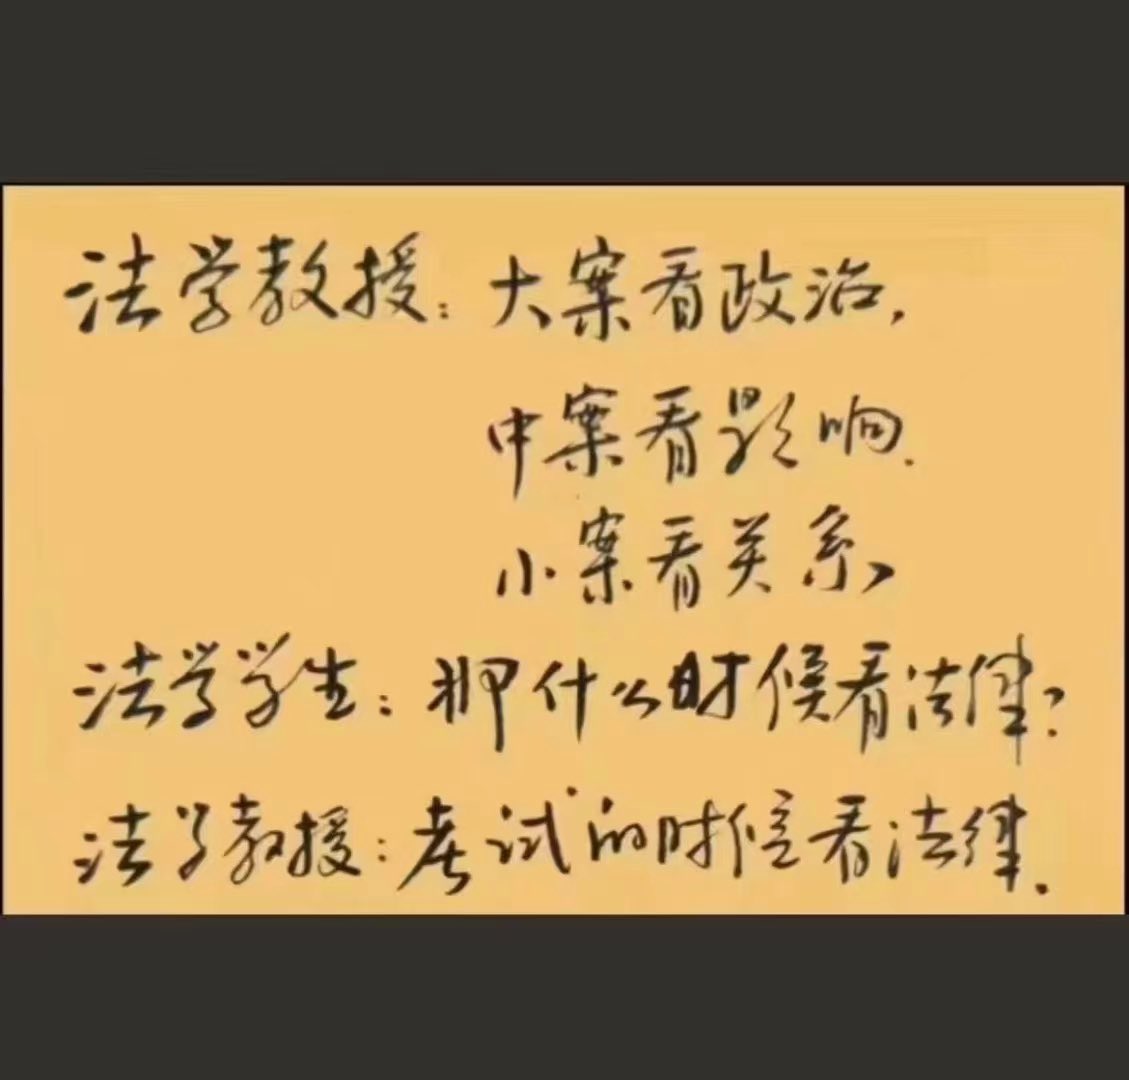 法学教授：大案看政治，
中案看影响.
小案看关系
法学学生：那什么时候看法律？
法学教授：考试的时候看法律.